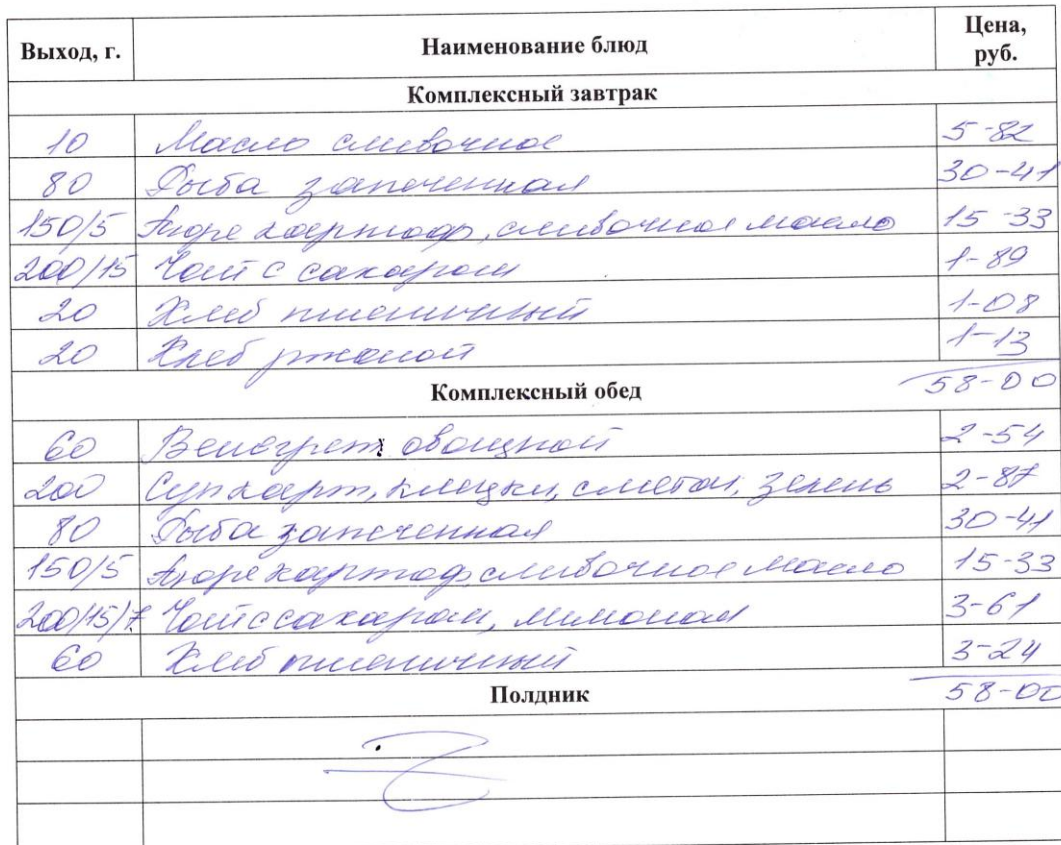 Выход, г. Наименование блюд Цена, руб.
Комплексный завтрак
10 Масло сливочное 5-82
80 Рыба запеченная 30-41
150/5 Пюре картоф, сливочное масло 15-33
200/15 Чай с сахаром 1-89
20 Хлеб пшеничный 1-08
20 Хлеб ржаной 1-13
Комплексный обед 58-00
60 Венегрет овощной 2-54
200 Суп карт, клецки, сметан, зелень 2-87
80 Рыба запеченная 30-41
150/5 Пюре картоф, сливочное масло 15-33
200/15/7 Чай с сахаром, лимоном 3-61
60 Хлеб пшеничный 3-24
Полдник 58-00